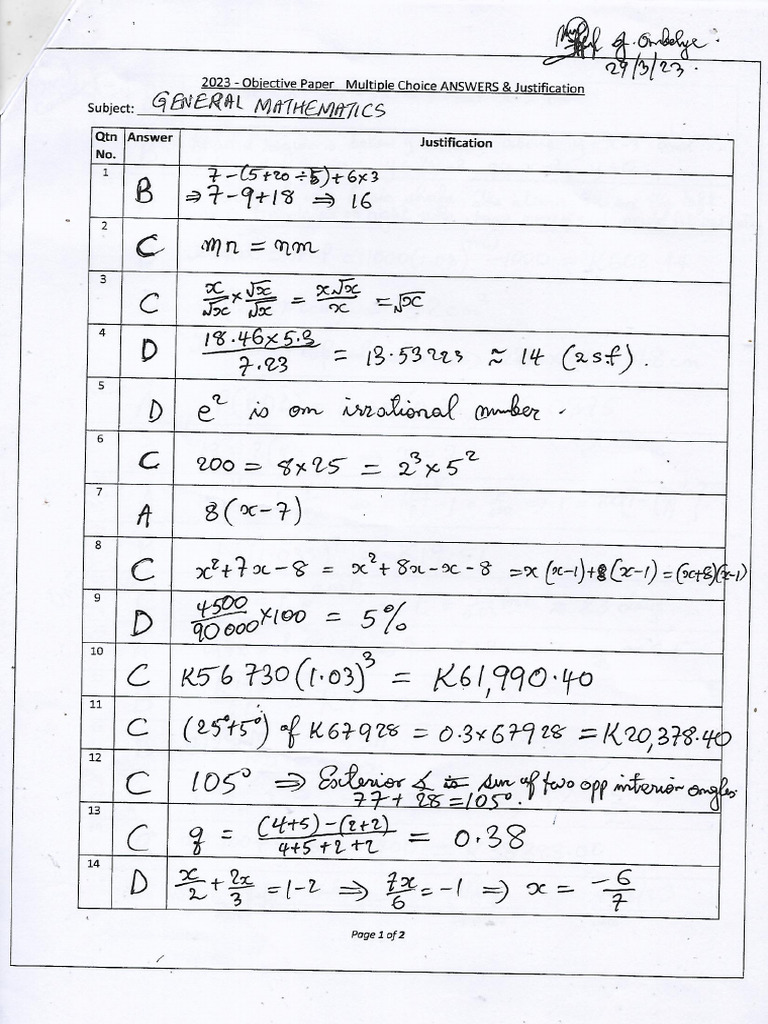 29/3/23.
2023 - Objective Paper Multiple Choice ANSWERS & Justification
Subject: GENERAL MATHEMATICS
Qtn No. Answer Justification
1 B 7-(5+20÷5)+6×3
⇒ 7-9+18 ⇒ 16
2 C mn = nm
3 C x/√x × √x/√x = x√x/x = √x
4 D 18.46×5.3/7.23 = 13.53223 ≈ 14 (2sf).
5 D e² is an irrational number.
6 C 200 = 8×25 = 2³×5²
7 A 8(x-7)
8 C x²+7x-8 = x²+8x-x-8 =x(x-1)+8(x-1)=(x+8)(x-1)
9 D 4500/90000 ×100 = 5%
10 C K56 730(1.03)³ = K61,990.40
11 C (25%+5%) of K67928 = 0.3×67928 = K20,378.40
12 C 105° ⇒ Exterior ∡ is sum of two opp interior angles.
77+28=105°.
13 C q = (4+5)-(2+2)/4+5+2+2 = 0.38
14 D x/2 + 2x/3 = 1-2 ⇒ 7x/6 = -1 ⇒ x = -6/7
Page 1 of 2